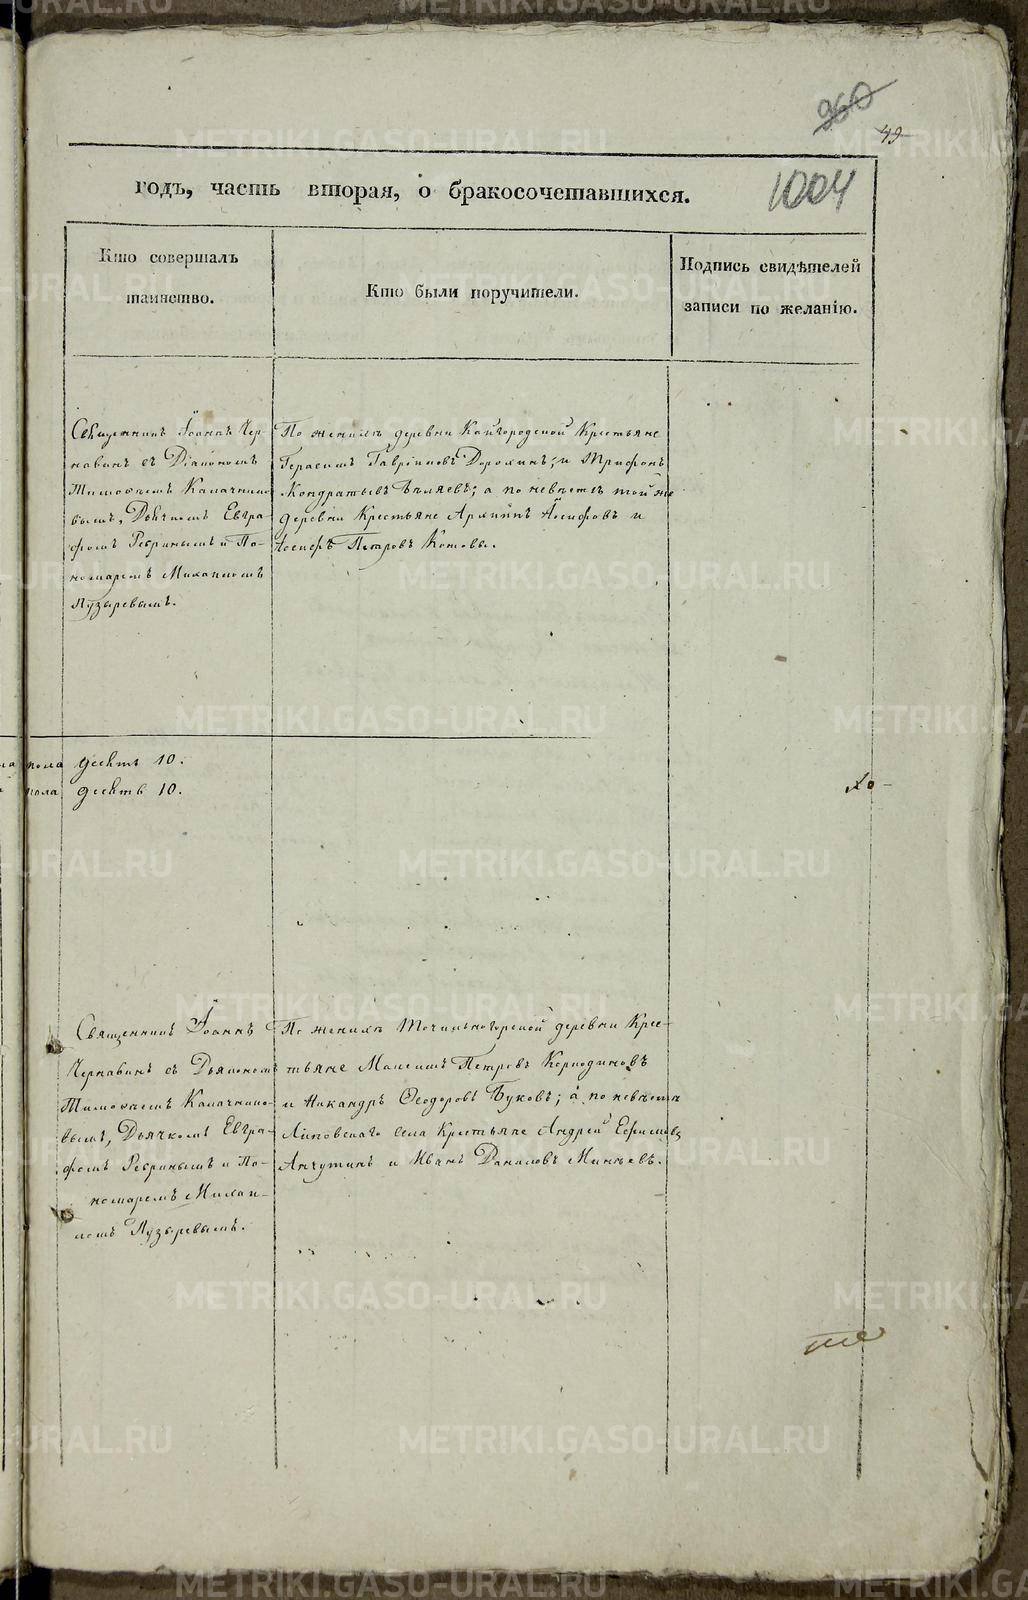 960
49
годъ, часть вторая, о бракосочетавшихся.
1004
Кто совершалъ
таинство.
Кто были поручители.
Подпись свидѣтелей
записи по желанію.
Священникъ Іоаннъ Чер-
навинъ съ Діакономъ
Тимофѣемъ Калачнико-
вымъ, Дьячкомъ Евгра-
фомъ Ребринымъ и По-
номаремъ Михаиломъ
Пузыревымъ.
По женихѣ деревни Кайгородской Крестьяне
Герасимъ Гавріиловъ Дорохинъ; и Трифонъ
Кондратьевъ Бѣляевъ; а по невѣстѣ той же
деревни Крестьяне Архипъ Іосифовъ и
Іосифъ Петровъ Котовы.
пола десять 10.
пола десять 10.
Священникъ Іоаннъ
Чернавинъ съ Дьякономъ
Тимофѣемъ Калачнико-
вымъ, Дьячкомъ Евгра-
фомъ Ребринымъ и По-
номаремъ Михаи-
ломъ Пузыревымъ.
По женихѣ Точильногорской деревни Крес-
тьяне Максимъ Петровъ
и Никандръ Ѳеодоровъ Буковъ; а по невѣстѣ
Липовскаго села Крестьяне Андрей Ефимовъ
Анчутинъ и Иванъ Даниловъ Минѣевъ.